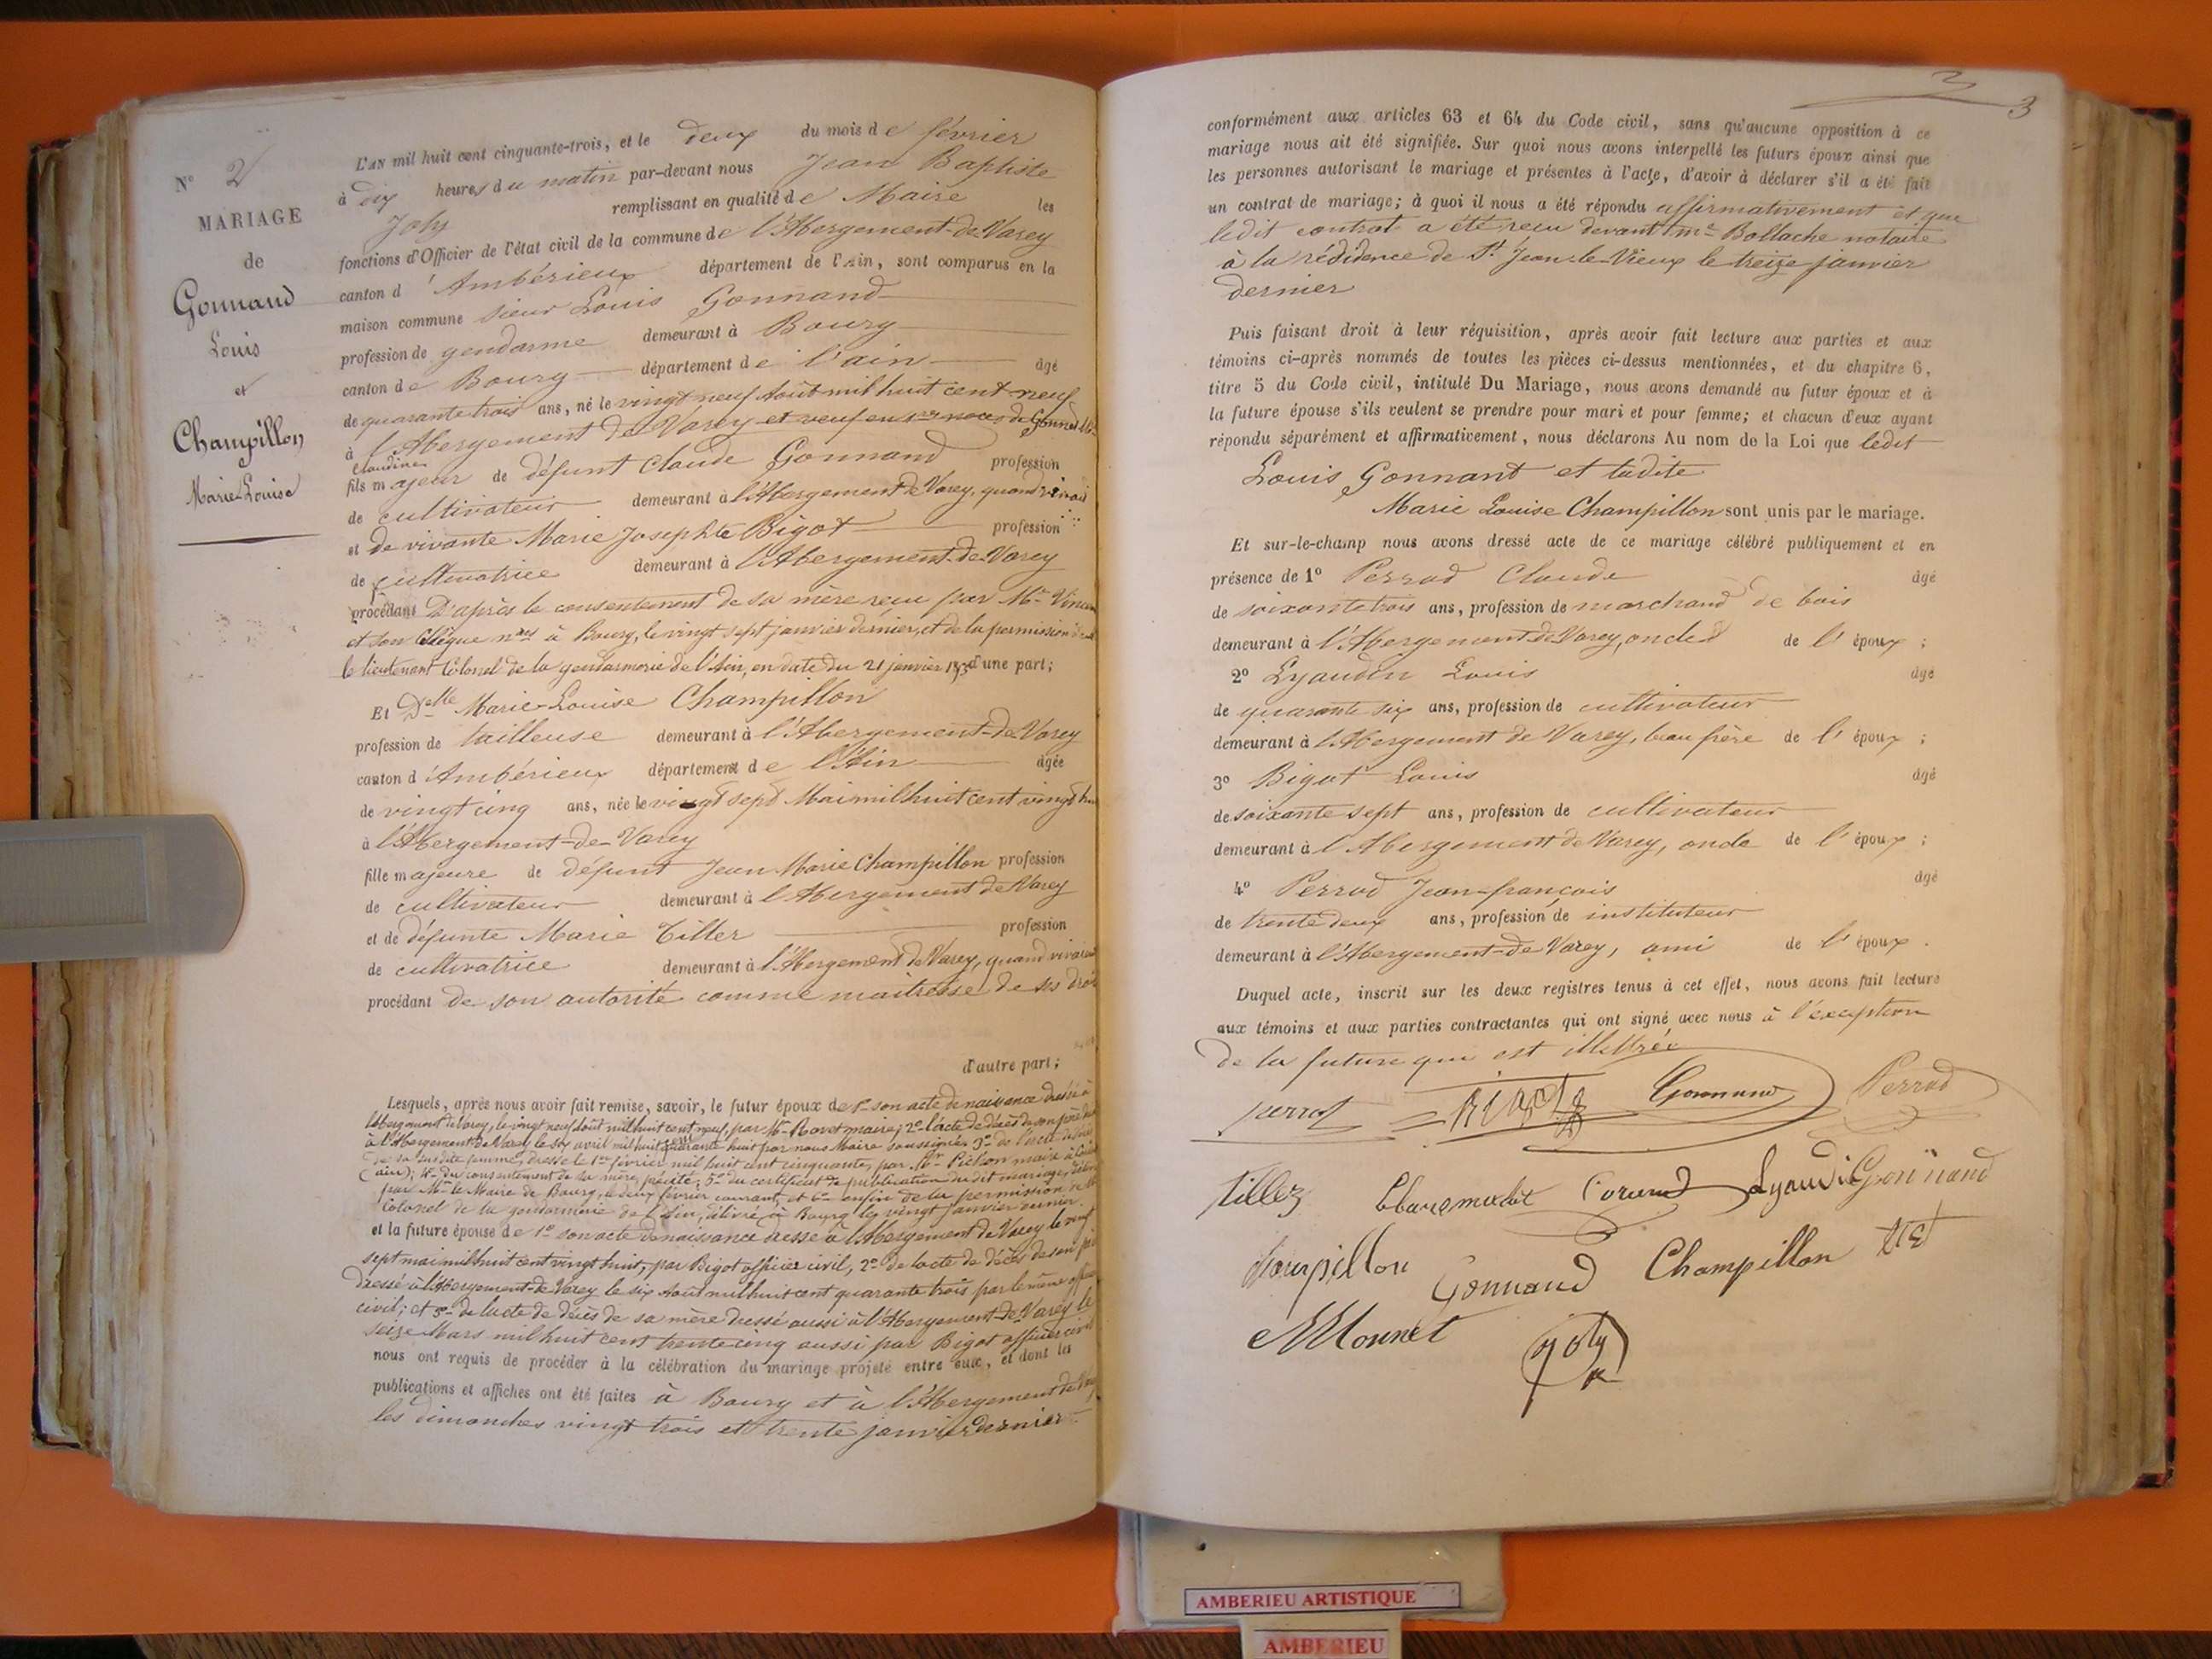 N° 2
MARIAGE
de
Gonnand
Louis
et
Champillon
Marie Louise
L'AN mil huit cent cinquante-trois, et le deux du mois de février
à dix heures du matin par-devant nous Jean Baptiste
Joly remplissant en qualité de Maire les
fonctions d'Officier de l'état civil de la commune de l'Abergement-de-Varey
canton d'Ambérieux département de l'Ain, sont comparus en la
maison commune sieur Louis Gonnand
profession de gendarme demeurant à Bourg
canton de Bourg département de l'ain âgé
de quarante trois ans, né le vingt neuf Août mil huit cent neuf
à l'Abergement de Varey et veuf en 1ères noces de
Claudine
fils majeur de défunt Claude Gonnand profession
de cultivateur demeurant à l'Abergement de Varey, quand vivait
et de vivante Marie Josephte Bigot profession
de cultivatrice demeurant à l'Abergement-de-Varey
procédant D'après le consentement de sa mère reçu par Me
et son Collègue nres à Bourg, le vingt sept janvier dernier, et de la permission
le lieutenant Colonel de la gendarmerie de l'Ain, en date du 21 janvier 1853 d'une part;
Et Delle Marie-Louise Champillon
profession de tailleuse demeurant à l'Abergement-de-Varey
canton d'Ambérieux département de l'Ain âgée
de vingt cinq ans, née le vingt sept Mai mil huit cent vingt
à l'Abergement-de-Varey
fille majeure de défunt Jean Marie Champillon profession
de cultivateur demeurant à l'Abergement de Varey
et de défunte Marie Tiller profession
de cultivatrice demeurant à l'Abergement de Varey, quand vivaient
procédant de son autorité comme maitresse de ses droits
d'autre part;
Lesquels, après nous avoir fait remise, savoir, le futur époux de 1° son acte de naissance dressé à
l'Abergement de Varey, le vingt neuf Août mil huit cent neuf, par Mr Rovet maire; 2° l'acte de décès de son père
à l'Abergement de Varey le six avril mil huit cent quarante huit par nous Maire soussigné; 3° de l'acte de décès
de sa susdite femme, dressé le 1er février mil huit cent cinquante, par Mr Pichon maire à
(ain); 4° du consentement de la mère précité; 5° du certificat de publication du dit mariage,
par Mr le Maire de Bourg, le deux février courant, et 6° enfin de la permission de
Colonel de la gendarmerie de l'Ain, délivré à Bourg le vingt janvier dernier
et la future épouse de 1° son acte de naissance dressé à l'Abergement de Varey le vingt
sept mai mil huit cent vingt huit, par Bigot officier civil, 2° de l'acte de décès de son père
dressé à l'Abergement-de Varey le six Août mil huit cent quarante trois par le même officier
civil; et 3° de l'acte de décès de sa mère dressé aussi à l'Abergement-de-Varey le
seize Mars mil huit cent trente cinq aussi par Bigot officier civil
nous ont requis de procéder à la célébration du mariage projeté entre eux, et dont les
publications et affiches ont été faites à Bourg et à l'Abergement de Varey
les dimanches vingt trois et trente janvier dernier
3
conformément aux articles 63 et 64 du Code civil, sans qu'aucune opposition à ce
mariage nous ait été signifiée. Sur quoi nous avons interpellé les futurs époux ainsi que
les personnes autorisant le mariage et présentes à l'acte, d'avoir à déclarer s'il a été fait
un contrat de mariage; à quoi il nous a été répondu affirmativement et que
ledit contrat a été reçu devant Me Bollache notaire
à la résidence de St Jean-le-Vieux le treize janvier
dernier
Puis faisant droit à leur réquisition, après avoir fait lecture aux parties et aux
témoins ci-après nommés de toutes les pièces ci-dessus mentionnées, et du chapitre 6,
titre 5 du Code civil, intitulé Du Mariage, nous avons demandé au futur époux et à
la future épouse s'ils veulent se prendre pour mari et pour femme; et chacun d'eux ayant
répondu séparément et affirmativement, nous déclarons Au nom de la Loi que ledit
Louis Gonnant et ladite
Marie Louise Champillon sont unis par le mariage.
Et sur-le-champ nous avons dressé acte de ce mariage célébré publiquement et en
présence de 1° Perrod Claude âgé
de soixante trois ans, profession de marchand de bois
demeurant à l'Abergement de Varey, oncle de l'époux;
2° Lyaudin Louis âgé
de quarante six ans, profession de cultivateur
demeurant à l'Abergement de Varey, beau frère de l'époux;
3° Bigot Louis âgé
de soixante sept ans, profession de cultivateur
demeurant à l'Abergement de Varey, oncle de l'époux;
4° Perrod Jean-françois âgé
de trente deux ans, profession de instituteur
demeurant à l'Abergement-de Varey, ami de l'époux.
Duquel acte, inscrit sur les deux registres tenus à cet effet, nous avons fait lecture
aux témoins et aux parties contractantes qui ont signé avec nous à l'exception
de la future qui est illettrée
perrod Bigot Gonnand Perrod
tillez Lyaudi Gonnand
Champillon Gonnand Champillon
Monnet Joly
AMBERIEU ARTISTIQUE
AMBERIEU